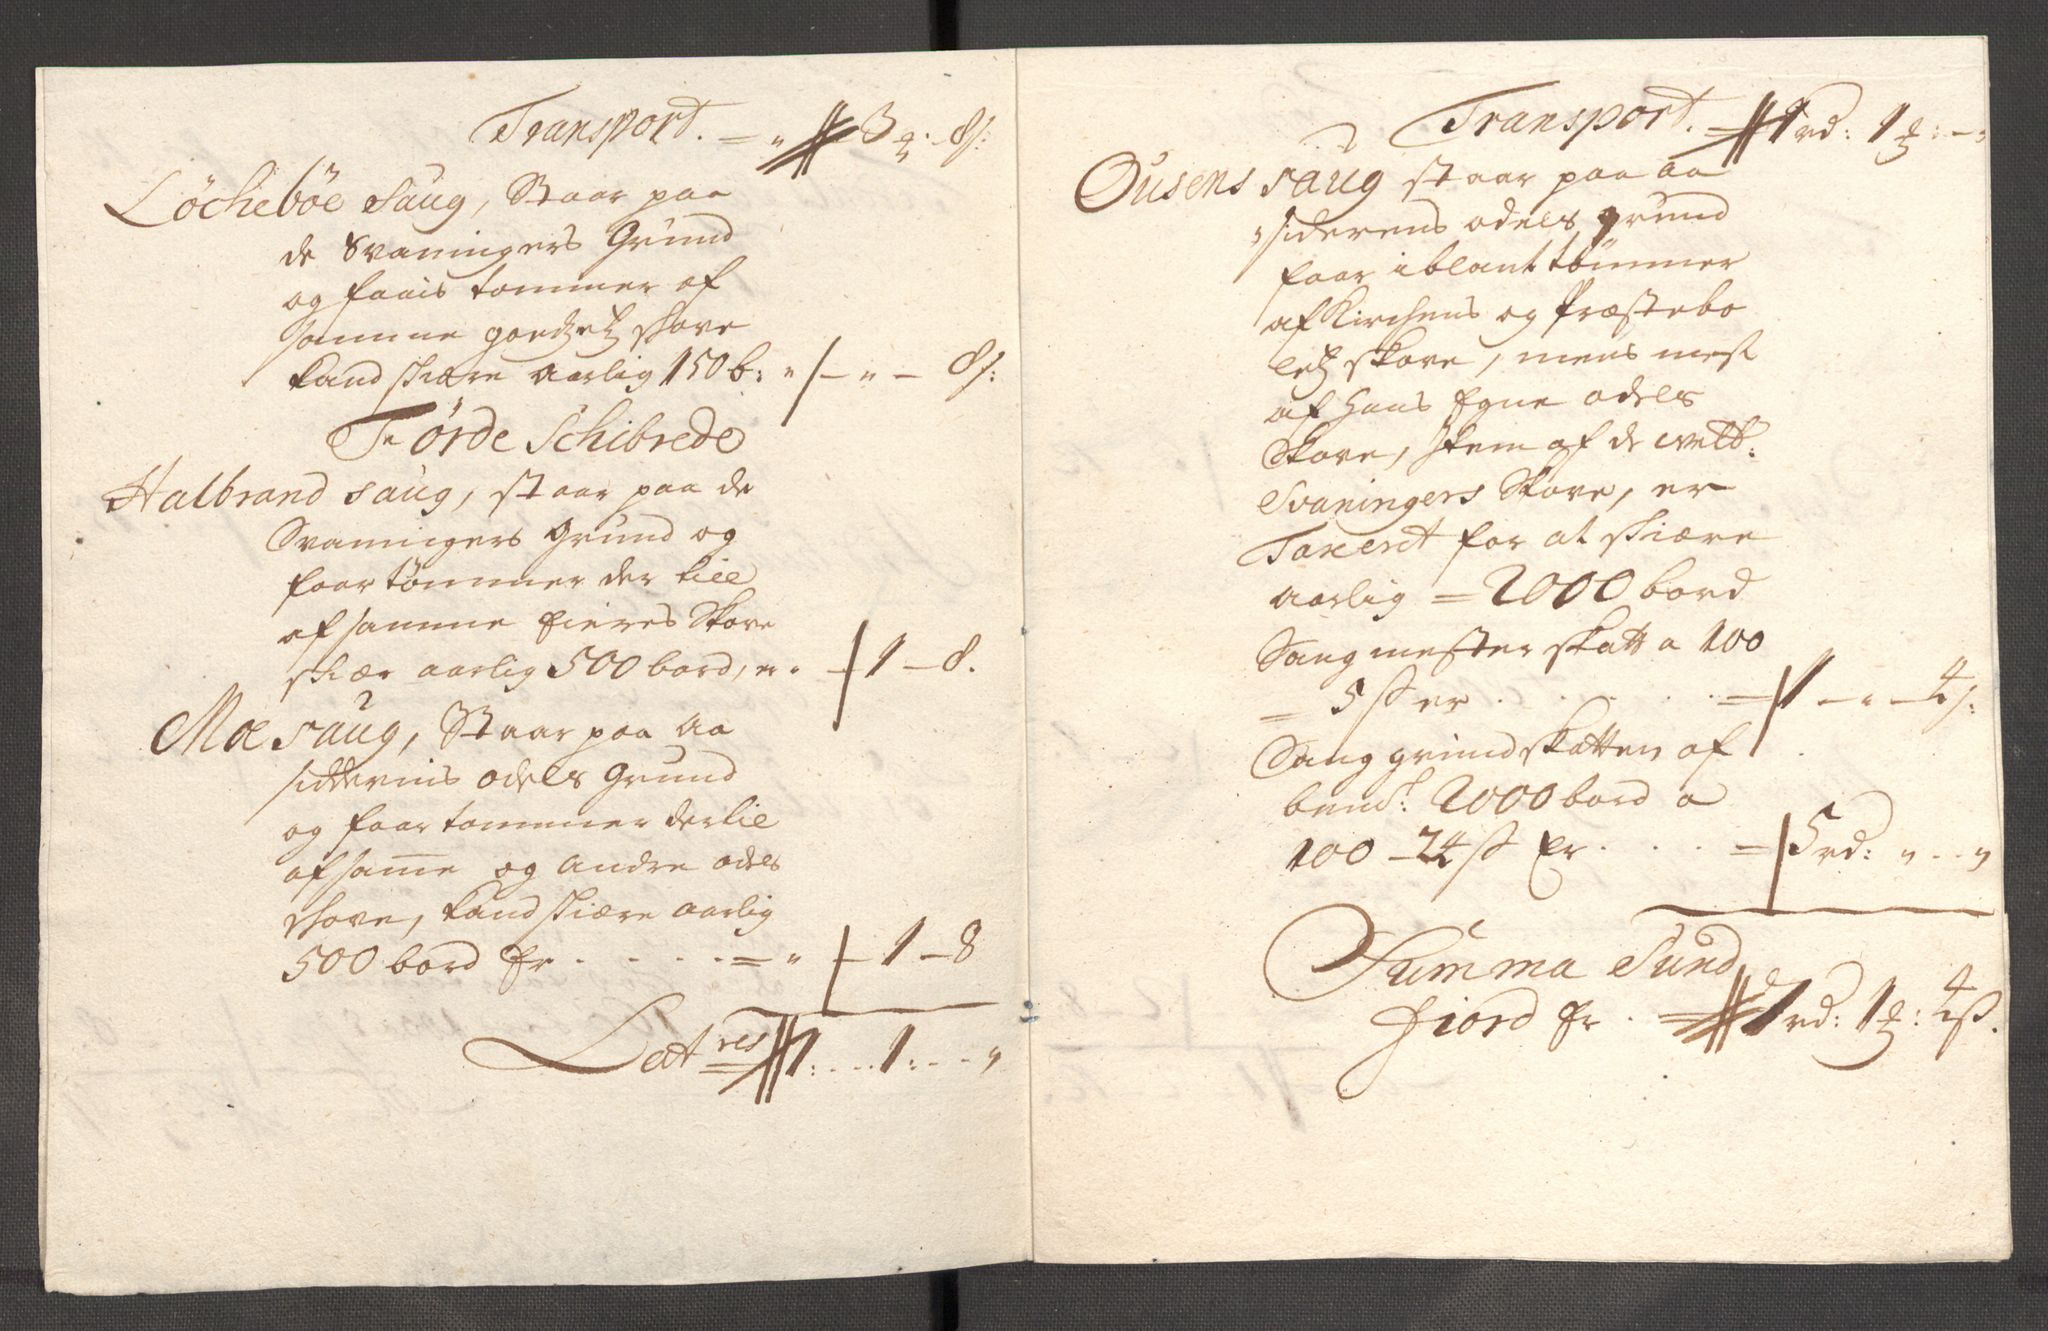 Transport. — „ 3 ₰. 8s:
Löcheböe Saug, Staar paa
de Svaningers Grund
og faais tommer af
samme goedzetz skove
kand skiære aarlig 150 b: „ – „ – 8s:
Förde Schibrede
Halbrand saug, staar paa de
Svaningers Grund og
faar tömmer der till
af samme Eieres Skove
skiær aarlig 500 bord, er „ – 1 – 8.
Moe saug, Staar paa Aa
sidderens odels Grund
og faar tommer dertil
af samme og andre odels
skove, kand skiære aarlig
500 bord Er . . . . = „ – 1 – 8
Lat res 1: . . . 1: – – „
Transport. 1 rd: 1 ₰: – „
Ousens saug staar paa aa
siderens odels grund
faar iblant tömmer
af Kirchens og Præstebo
letz skove, mens mest
af hans Egne odels
Skove, item af de welb:
Svaningers Skove, er
Taxert for at skiære
aarlig = 2000 bord
Saugmester skatt a 100
= 5 ß er . . . . . = 1 – „ – 4s:
Saug grund skatten af
bemt: 2000 bord a
100 – 24 ß Er . . . = 5 rd: „ – – „
Summa Sund
fiord Er . = 1 rd: 1 ₰: 4 ß.